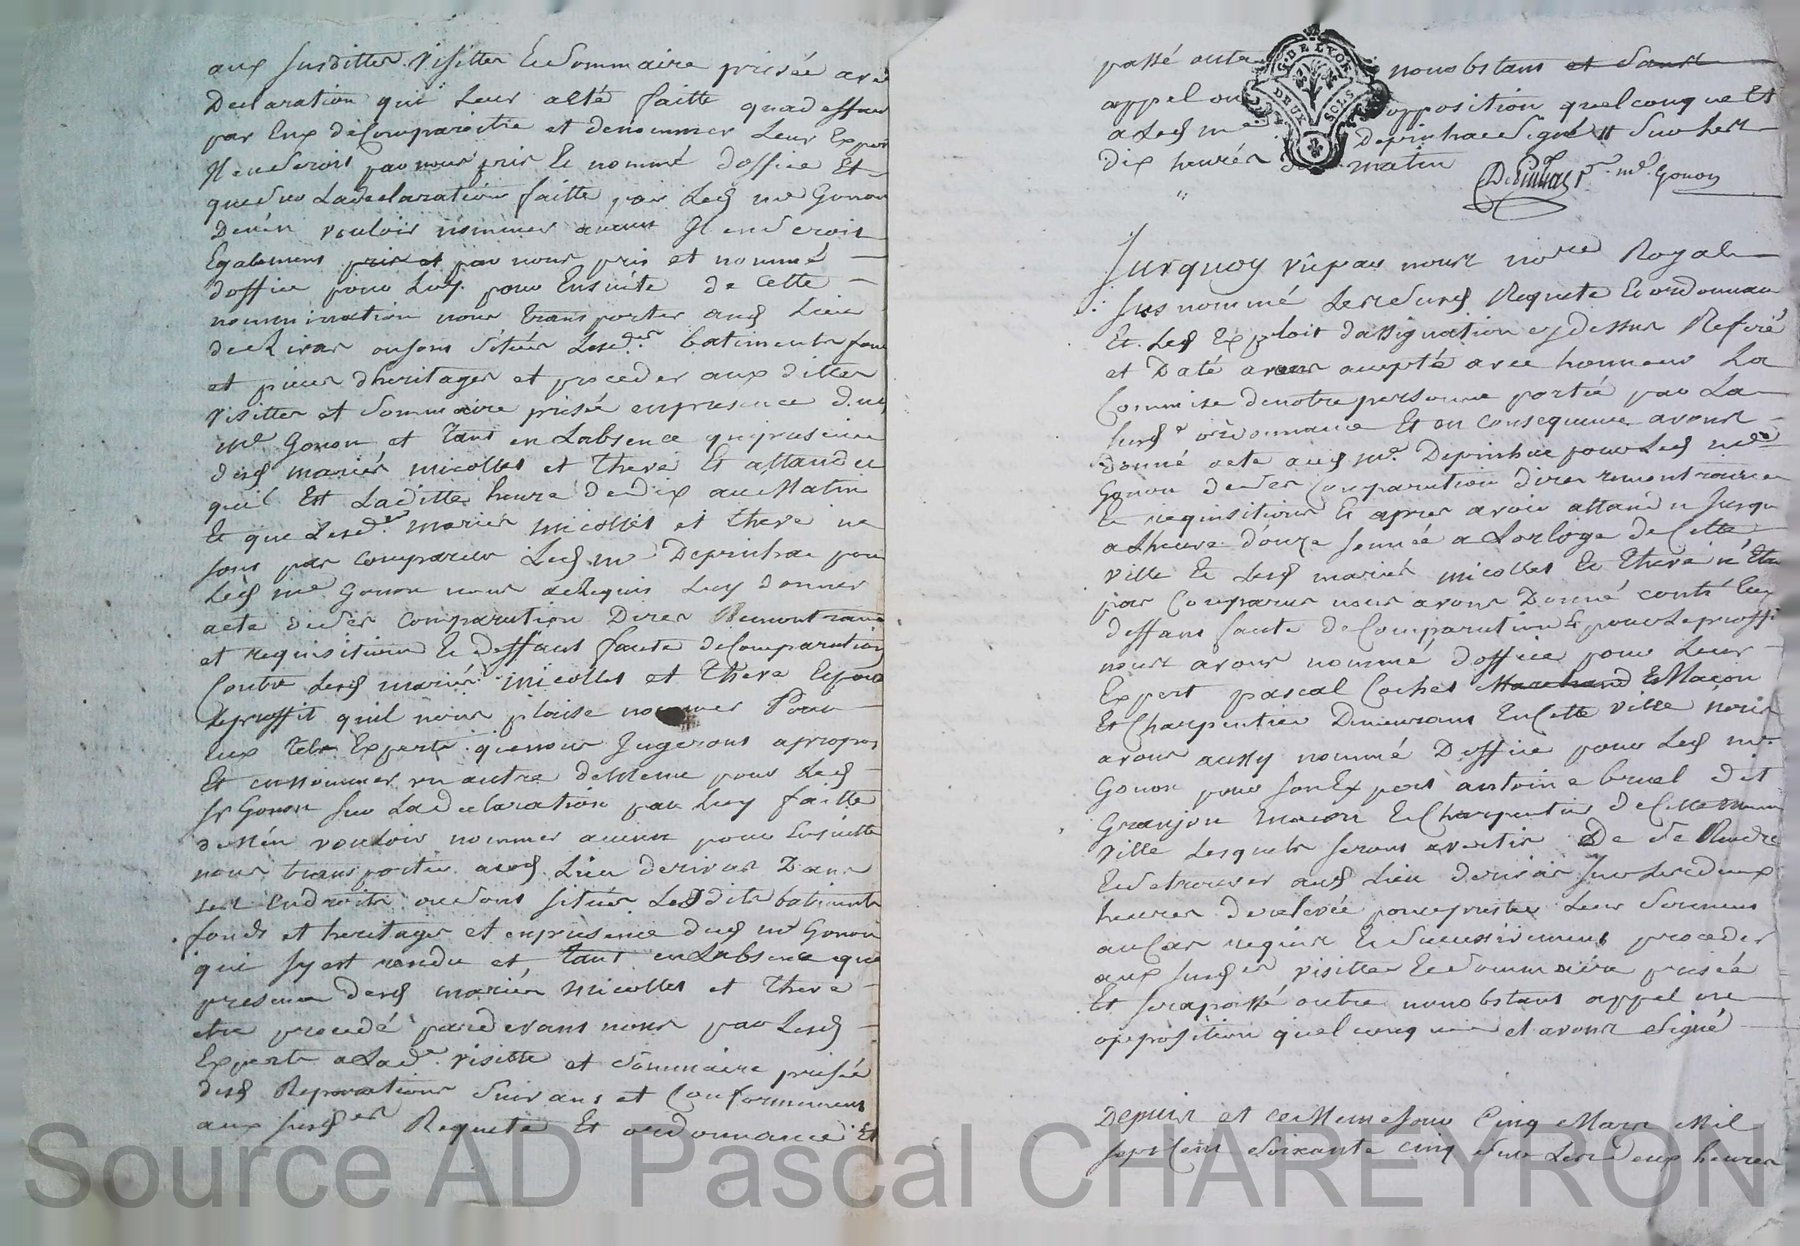 aux susdittes visittes et sommaire prisée avec
Declaration qui leur a été faitte qua deffaut
par Eux de Comparoitre et denommer leur Expert
Il en seroit par nous pris et nommé doffice Et
que sur la declaration faitte par Led me Gonon
De nen vouloir nommer aucun Il en seroit
Egalement pris et par nous pris et nommé
doffice pour Luy pour Ensuite de Cette
nommination nous transporter aud Lieu
de Rivas ou sont situés Lesd. batiments fonds
et pieces dheritages et proceder aux dittes
visittes et sommaire prisée en presence dud
me Gonon et tant en Labsence que presence
desd mariés micolles et there Et attandu
quil Est Laditte heure de dix au Matin
Et que Lesd. mariés micolles et there ne
sont pas comparus Led me Deprinhac pour
Led me Gonon nous a Requis Luy donner
acte de ses Comparution Dires Remontrances
et requisitions Et deffaut faute de Comparution
Contre Lesd mariés micolles et there Et pour
Le proffit quil nous plaise nommer Pour
eux tels Experts que nous Jugerons apropos
Et en nommer un autre de Meme pour Led
Sr Gonon sur La declaration par Luy faitte
de Nen vouloir nommer aucun pour Ensuitte
nous transporter aud Lieu de rivas Dans
les Endroits ou sont situés Lesdits batiments
fonds et heritages et en presence dud me Gonon
qui sy est rendu et tant en Labsence que
presence desd mariés micolles et there
etre procedé pardevant nous par Lesd
Experts a Lad. visitte et sommaire prisée
desd Reparations suivant et Conformement
aux susd. Requete Et ordonnance Et
passé outre nonobstant et sans
appel ou opposition quelconque Et
a Led me Deprinhac signé sur Les
dix heures du matin
G. DE LYON
DEUX SOLS
Deprinhac pr. me Gonon
Surquoy vû par nous nore Royal
susnommé Les susd Requete Et ordonnance
Et Led Exploit dassignation cy dessus Referé
et Daté avons accepté avec honneur La
Commise de notre personne portée par La
susd. ordonnance Et en consequence avons
donné acte aud me Deprinhac pour Led me
Gonon de ses Comparution dires remontrances
Et requisitions Et apres avoir attandu Jusqua
a Lheure douze sonnée a Lorloge de Cette
ville Et Lesd mariés micolles Et there n'Etant
pas Comparus nous avons Donné contr Eux
deffaut faute de Comparution Et pour Le proffit
nous avons nommé doffice pour Leur
Expert pascal Coches Marchand Et Maçon
Et Charpentier Demeurant En Cette ville nous
avons aussy nommé Doffice pour Led me
Gonon pour son Expert antoine bruel dit
Granjon macon Et Charpentier de Cette meme
ville Lesquels seront avertis De se Rendre
Et se trouver aud Lieu de rivas sur Les deux
heures de relevée pour preter Leur serment
au Cas requis Et successivement proceder
aux susd. visittes Et sommaire prisée
Et sera passé outre nonobstant appel ou
opposition quelconque et avons signé
Depuis et ce Meme Jour Cinq Mars Mil
sept Cent Soixante cinq sur Les deux heures
Source AD Pascal CHAREYRON